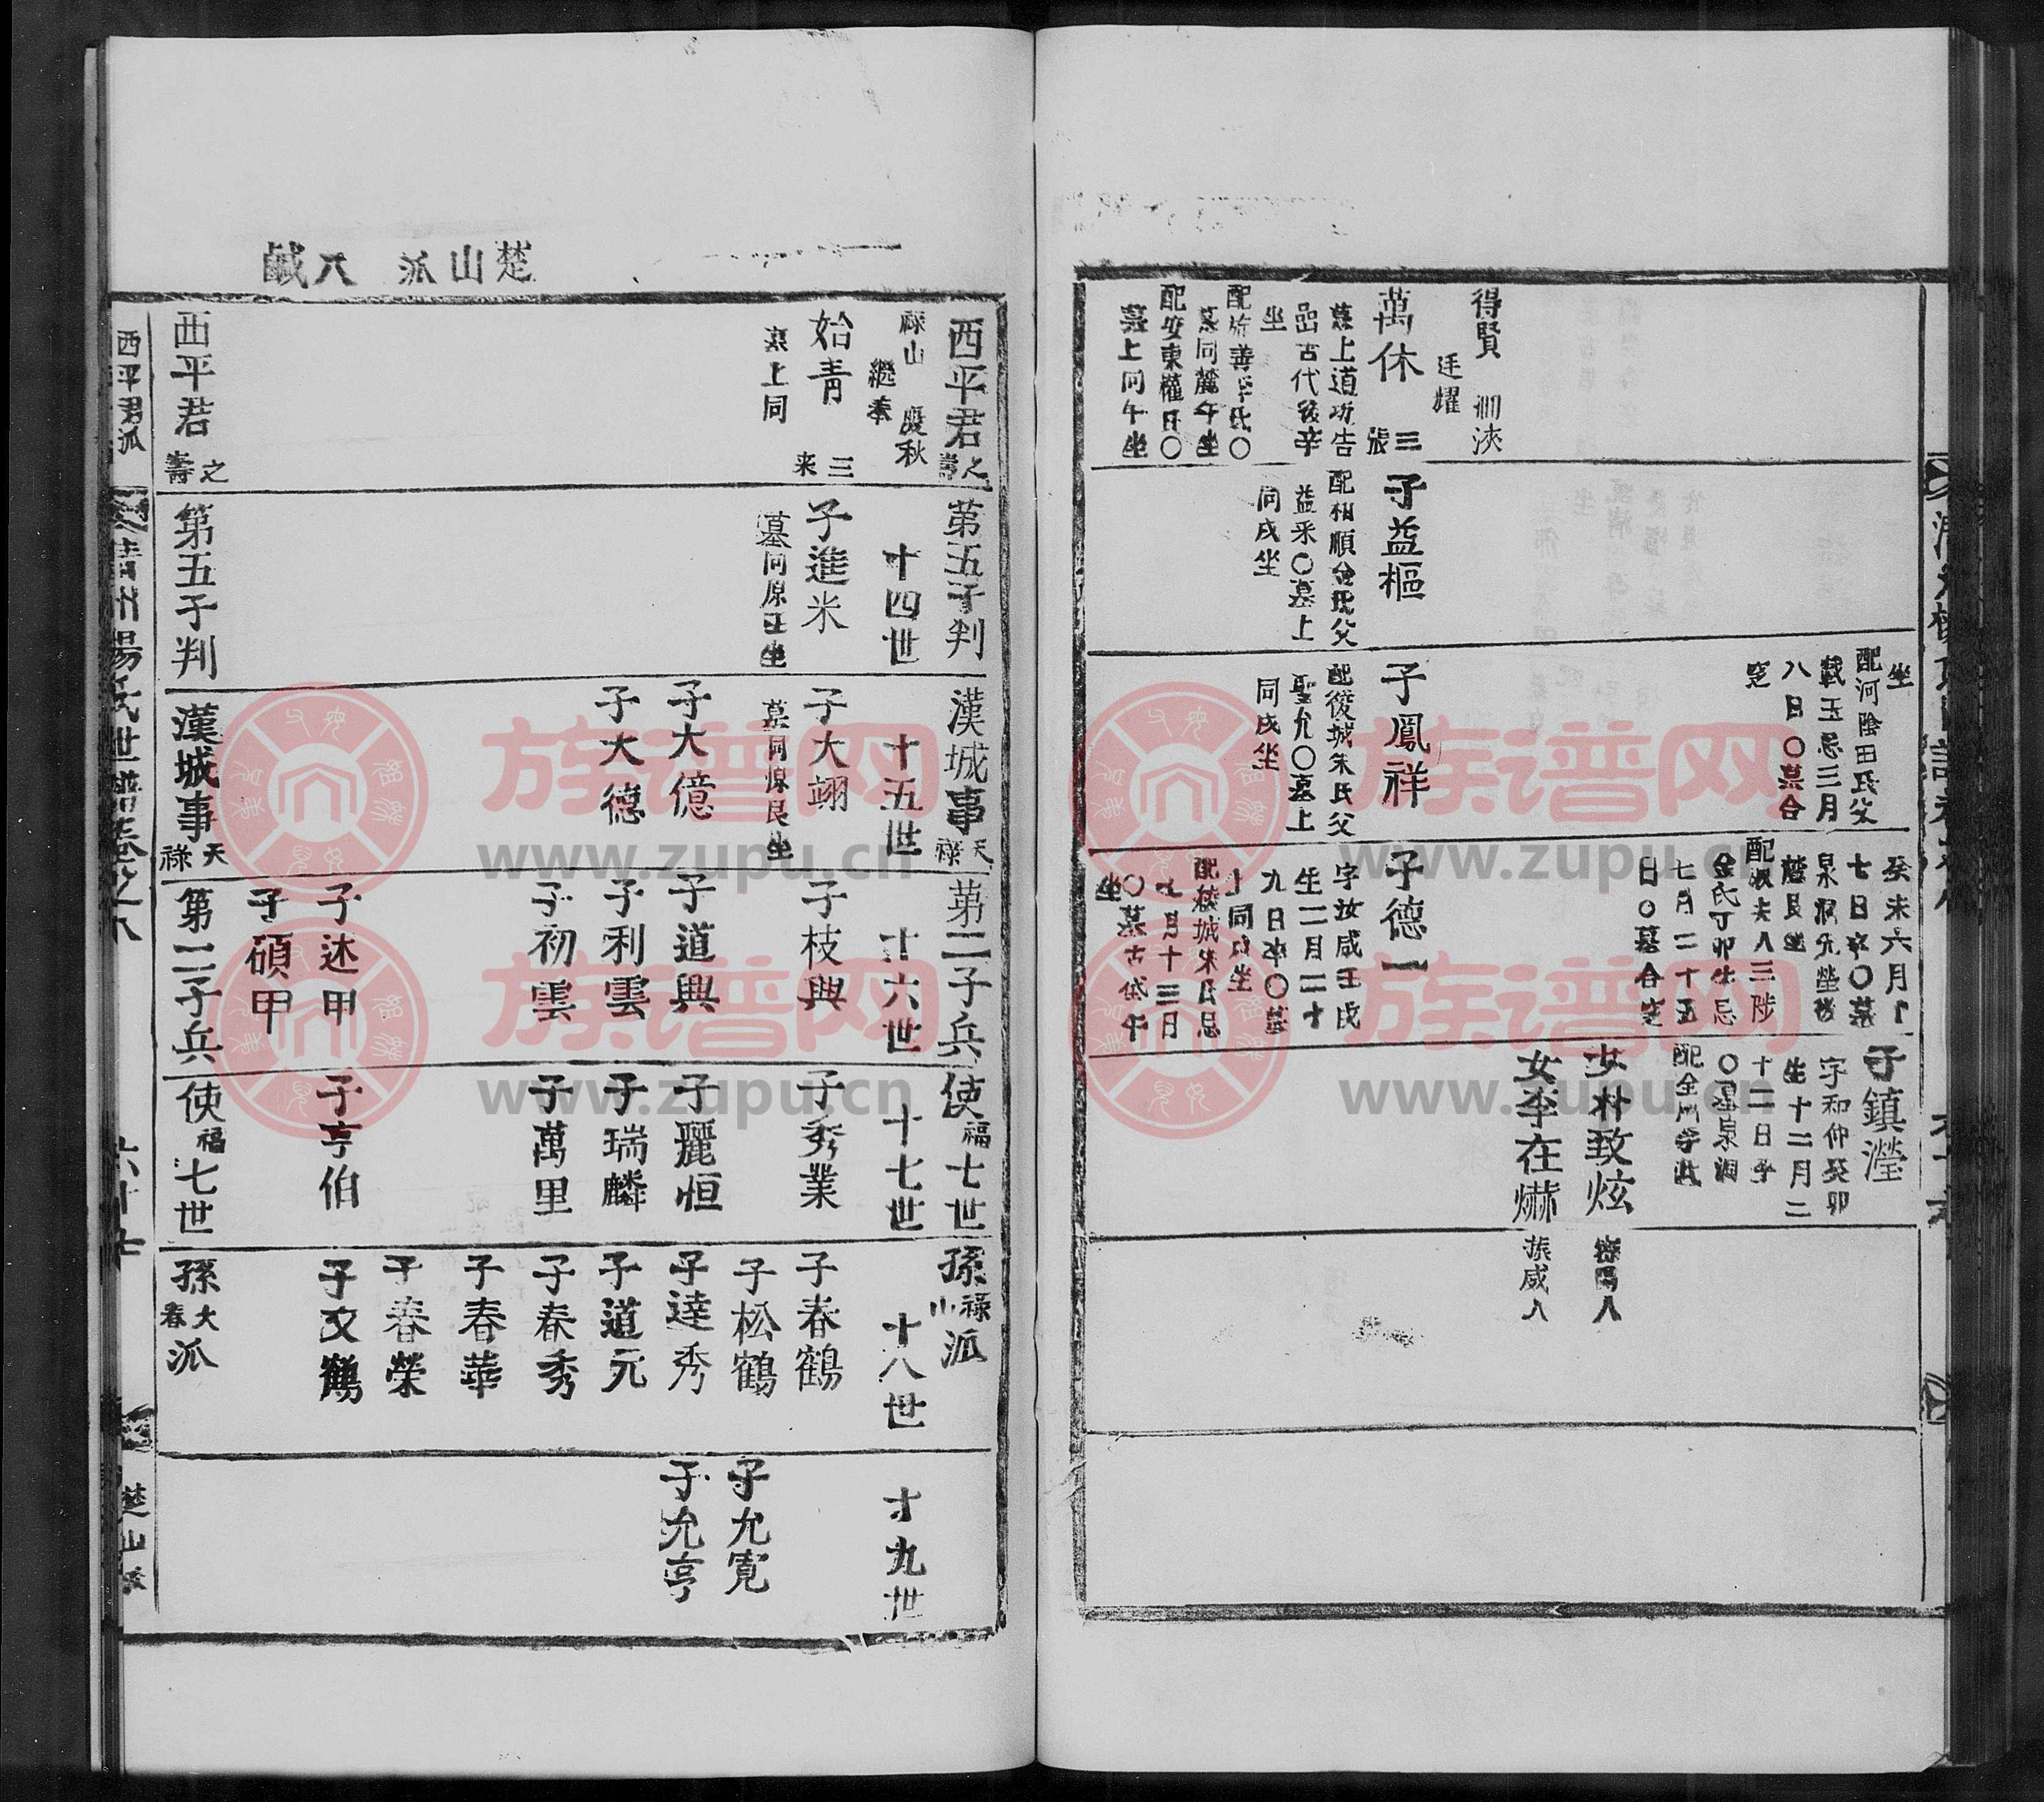 得賢
廷耀
萬休
墓上道功告
坐
配旌善李氏〇
墓同麓午坐
配安東權氏〇
墓上同午坐
子益樞
配和順金氏父
益采〇墓上
同戌坐
坐
配河陰田氏父
載玉忌三月
八日〇墓合
窆
子鳳祥
配綾城朱氏父
聖允〇墓上
同戌坐
癸未六月
七日卒〇墓
麓艮坐
金氏丁卯生忌
七月二十五
日〇墓合窆
子德一
字汝咸壬戌
生二月二十
九日卒〇墓
上同戌坐
配綾城朱氏忌
七月十三日
坐
子鎮瀅
字和仲癸卯
生十二月二
十二日卒
女朴致炫
女李在爀
楚山派
西平君之壽第五子判漢城事天祿第二子兵使福七世孫祿山派
祿山
慶秋
繼泰
十四世
十五世
十六世
十七世
十八世
十九世
始青
三來
墓上同
子進米
墓同原壬坐
子大翊
墓同原艮坐
子枝興
子秀業
子春鶴
子松鶴
子允寬
子大億
子道興
子麗恒
子達秀
子允亨
子大德
子利雲
子瑞麟
子道元
子初雲
子萬里
子春秀
子春華
子春榮
子述甲
子亨伯
子文鶴
子碩甲
西平君之壽第五子判漢城事天祿第二子兵使福七世孫大春派
西平君派
清州楊氏世譜卷之八
六十七
楚山派
www.zupu.cn
族谱网
www.zupu.cn
族谱网
www.zupu.cn
族谱网
www.zupu.cn
族谱网